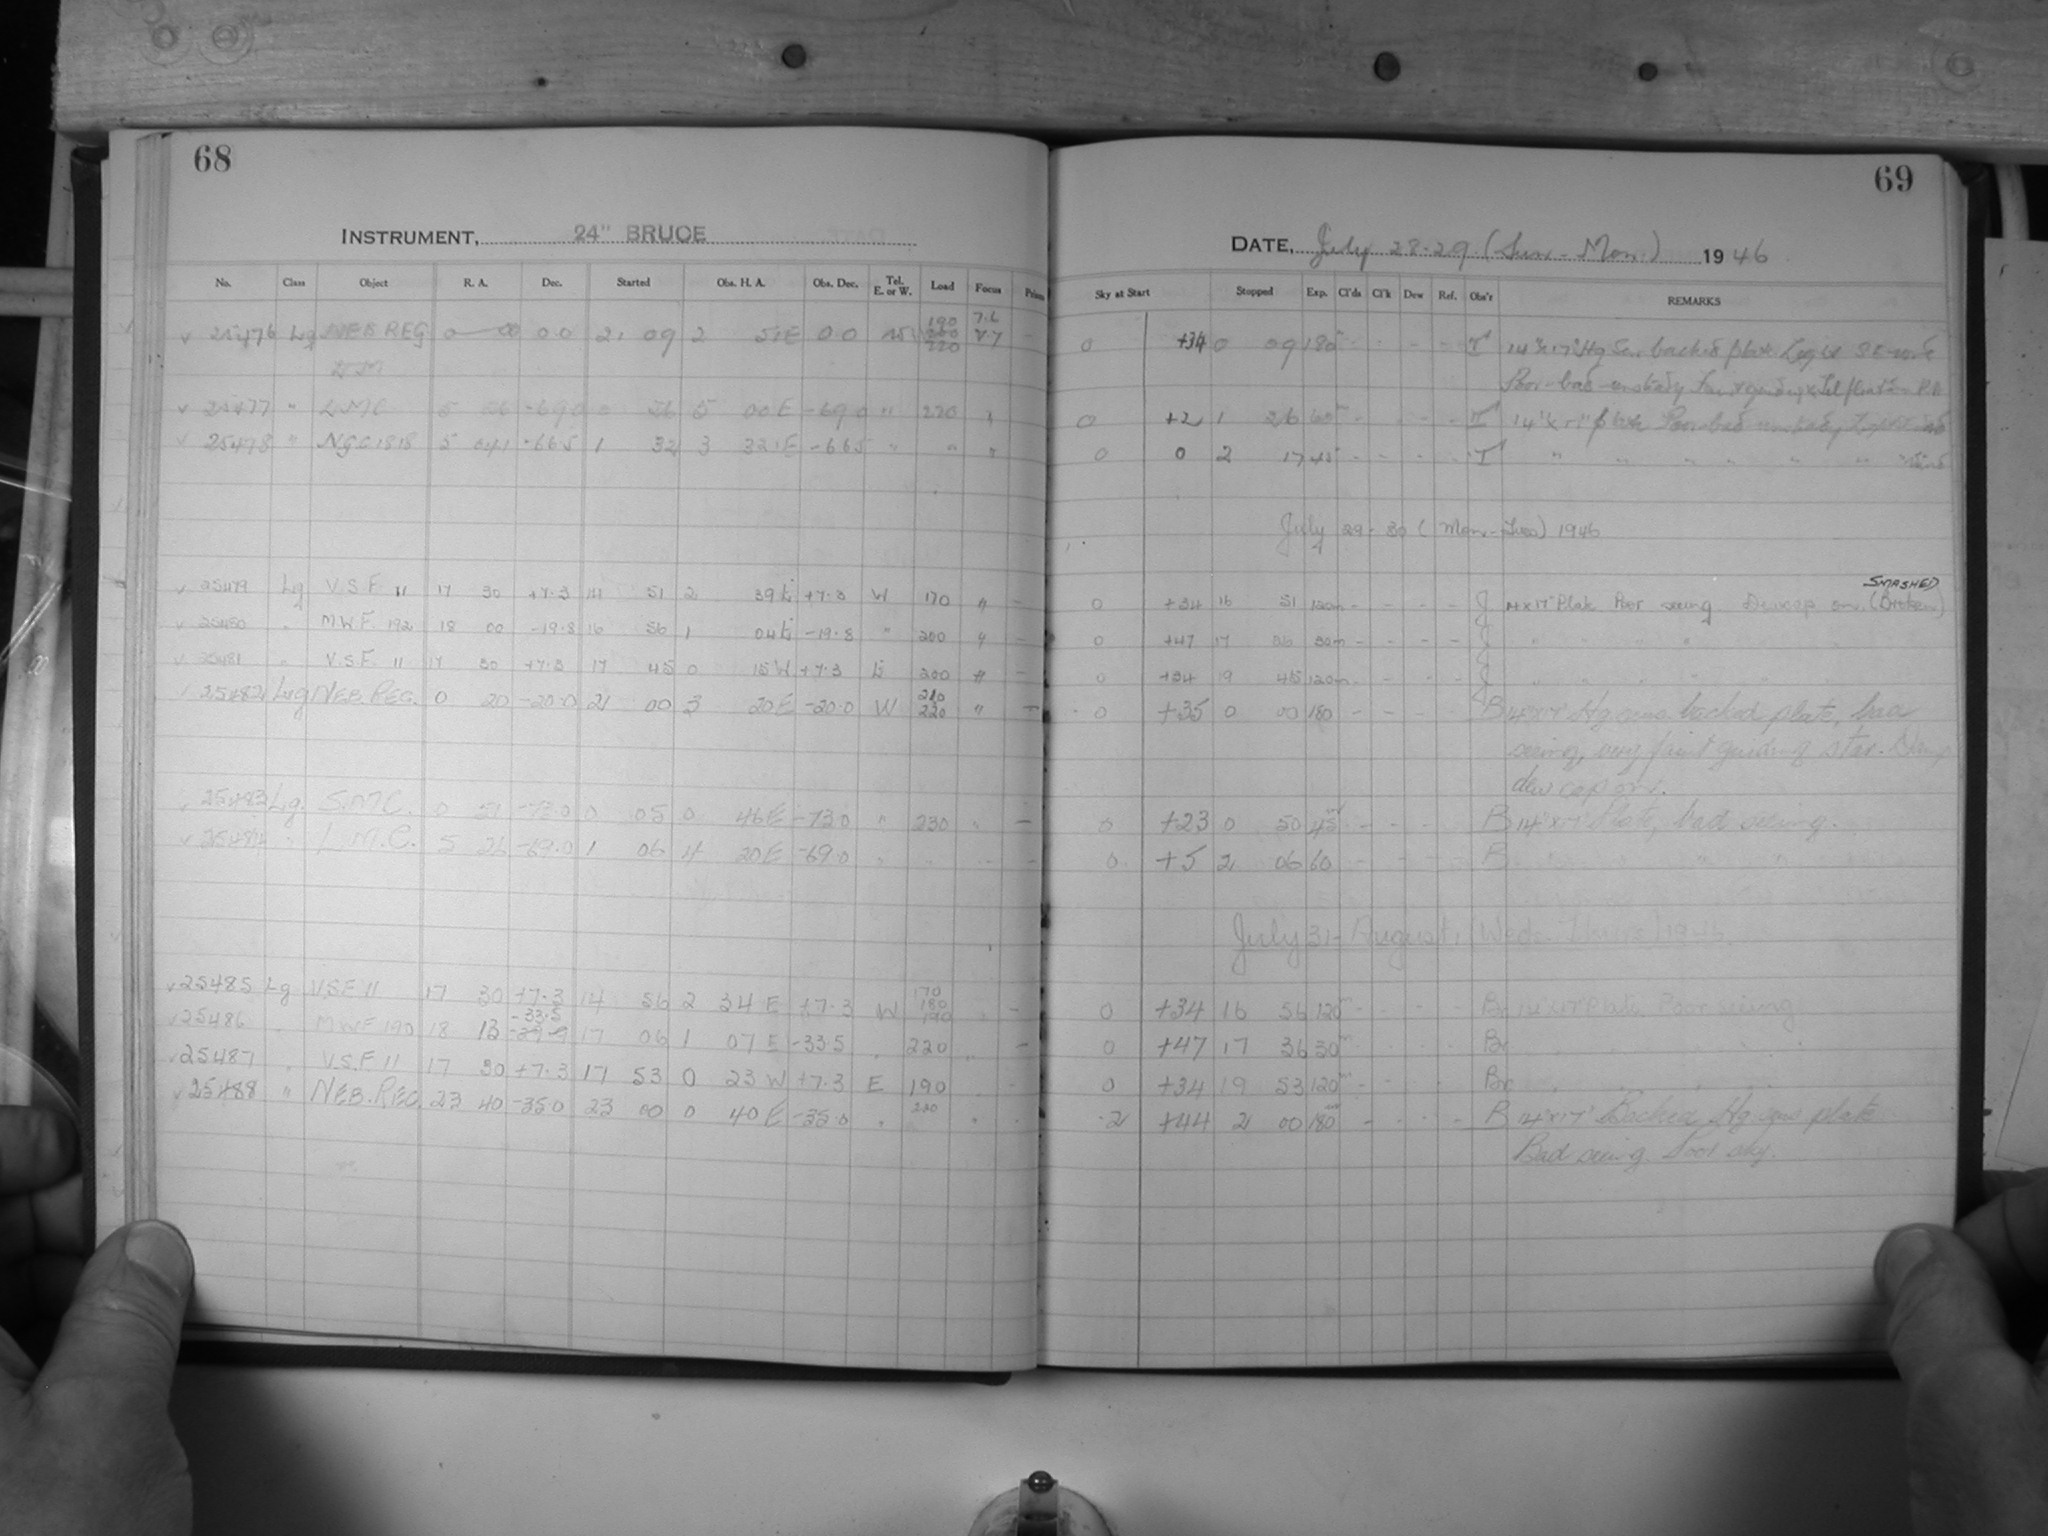 68
INSTRUMENT, 24" BRUCE
No. Class Object R. A. Dec. Started Obs. H. A. Obs. Dec. Tel. E. or W. Load Focus
25476 Lg NEB REG 0 00 0.0 21 09 2 51 E 0.0 190 200 220 7.6 7.7
25477 " LMC 5 26 -69.0 0 26 5 00 E -69.0 " 220 "
25478 " NGC 1818 5 04.1 -66.5 1 32 3 32 E -66.5 " " "
25479 Lg V.S.F. 11 17 30 +7.3 14 51 2 39 E +7.3 W 170 " -
25480 " M.W.F. 192 18 00 -19.8 16 56 1 04 E -19.8 " 200 "
25481 " V.S.F. 11 17 30 +7.3 17 45 0 15 W +7.3 E 200 " -
25482 Lg NEB. REG. 0 20 -20.0 21 00 3 20 E -20.0 W 210 220 " -
25483 Lg. S.M.C. 0 51 -73.0 0 05 0 46 E -73.0 " 230 " -
25484 " L.M.C. 5 26 -69.0 1 06 4 20 E -69.0 " - -
25485 Lg V.S.F. 11 17 30 +7.3 14 56 2 34 E +7.3 W 170 180 190 " -
25486 " M.W.F. 190 18 13 -33.5 17 06 1 07 E -33.5 " 220 " -
25487 " V.S.F. 11 17 30 +7.3 17 53 0 23 W +7.3 E 190 -
25488 " NEB. REG. 23 40 -35.0 23 00 0 40 E -35.0 " 220 "
69
DATE, July 28-29 (Sun.-Mon.) 1946
Sky at Start Stopped Exp. Cl'ds Cl'k Dew Ref. Obs'r REMARKS
0 +34 0 09 180m - - - - T 14"x17" Hg Sen. backed plate
Poor-bad-unsteady
0 +2 1 26 60m - - - - T 14"x17" plate Poor-bad unsteady
0 0 2 17 45 - - - - T " " " " " "
July 29-30 (Mon.-Tues) 1946
0 +34 16 51 120m - - - - J 14x17" Plate Poor seeing Dewcap on. (Broken) SMASHED
0 +47 17 26 30m - - - - J " " " "
0 +34 19 45 120m - - - - J " " " "
0 +35 0 00 180 - - - - B 14"x17" Hg sens. backed plate, bad
seeing, very faint guiding star.
dew cap on.
0 +23 0 50 45m - - - - B 14"x17" Plate, bad seeing.
0 +5 2 06 60 - - - - B " " " "
July 31-August 1 (Wed.-Thurs) 1946.
0 +34 16 56 120m - - - - Br 14"x17" Plate Poor seeing
0 +47 17 36 30m - - - - Br " " " "
0 +34 19 53 120m - - - - Br " " " "
-2 +44 2 00 180m - - - - B 14"x17" Backed Hg sens plate
Bad seeing. Poor sky.